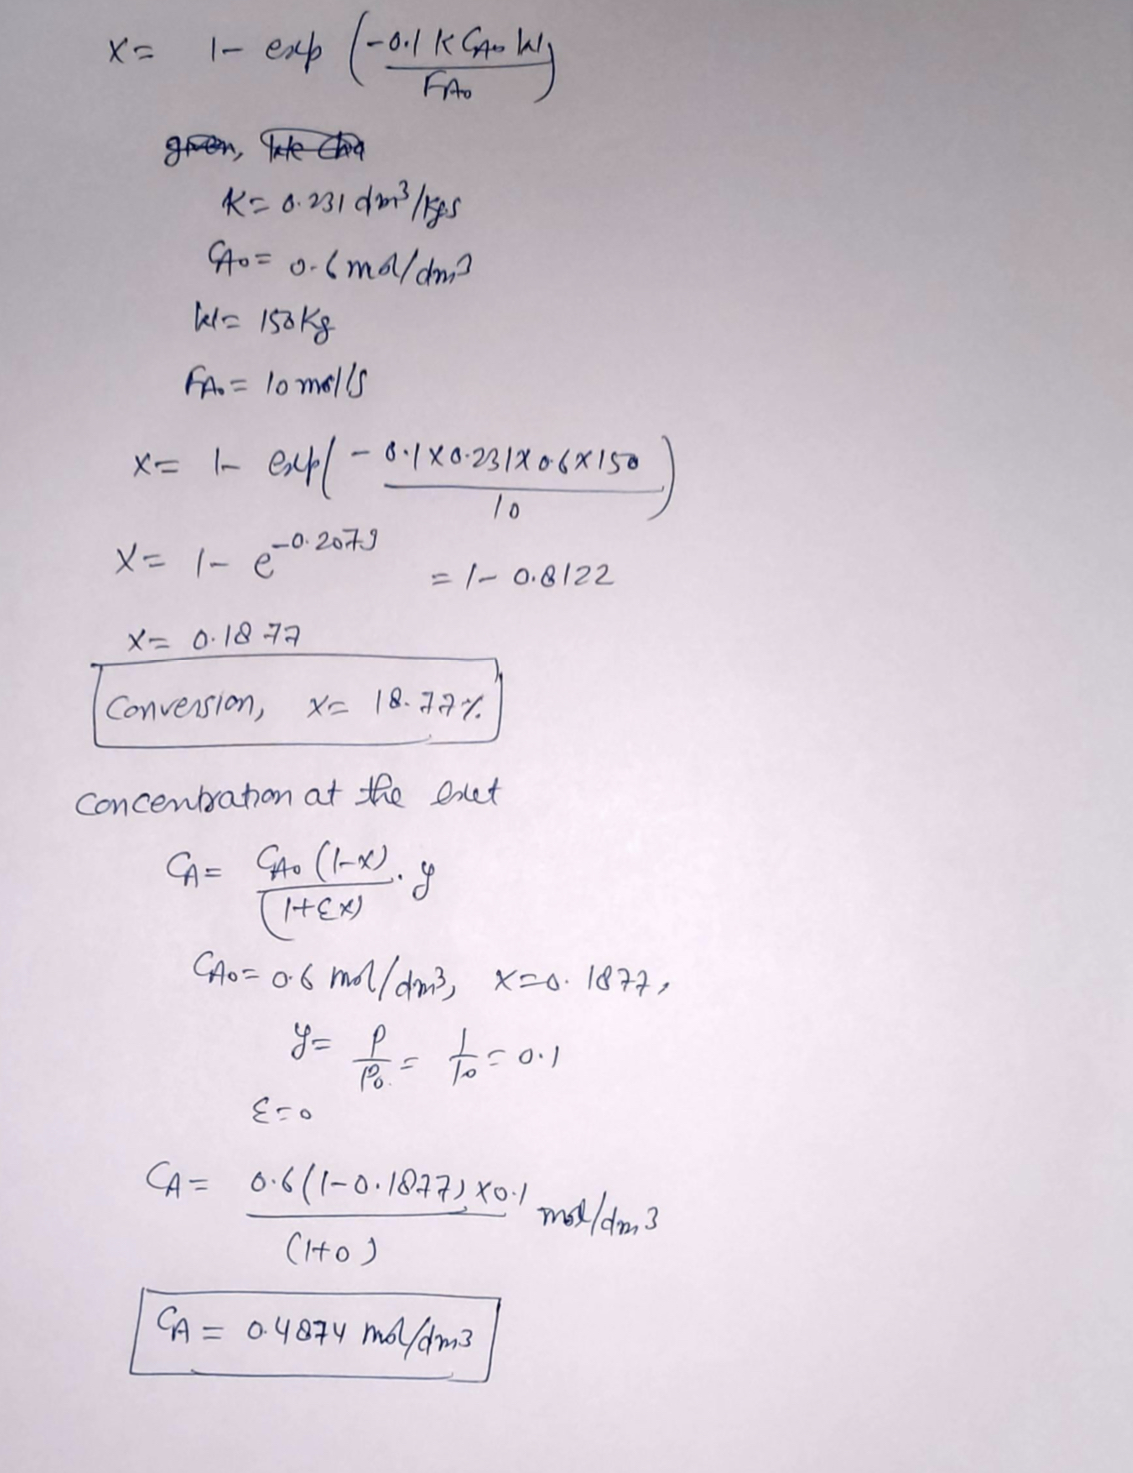 X = 1 - exp (-0.1 K CA0 W / FA0)
given,
K = 0.231 dm³/kgs
CA0 = 0.6 mol/dm3
W = 150 Kg
FA0 = 10 mol/s
X = 1 - exp( - 0.1 X 0.231 X 0.6 X 150 / 10 )
X = 1 - e^-0.2079 = 1 - 0.8122
X = 0.1877
Conversion, X = 18.77%
concentration at the exit
CA = CA0 (1-X) / (1+εX) . y
CA0 = 0.6 mol/dm³, X = 0.1877,
y = P / P0 = 1 / 10 = 0.1
ε = 0
CA = 0.6 (1 - 0.1877) X 0.1 / (1+0) mol/dm3
CA = 0.4874 mol/dm3